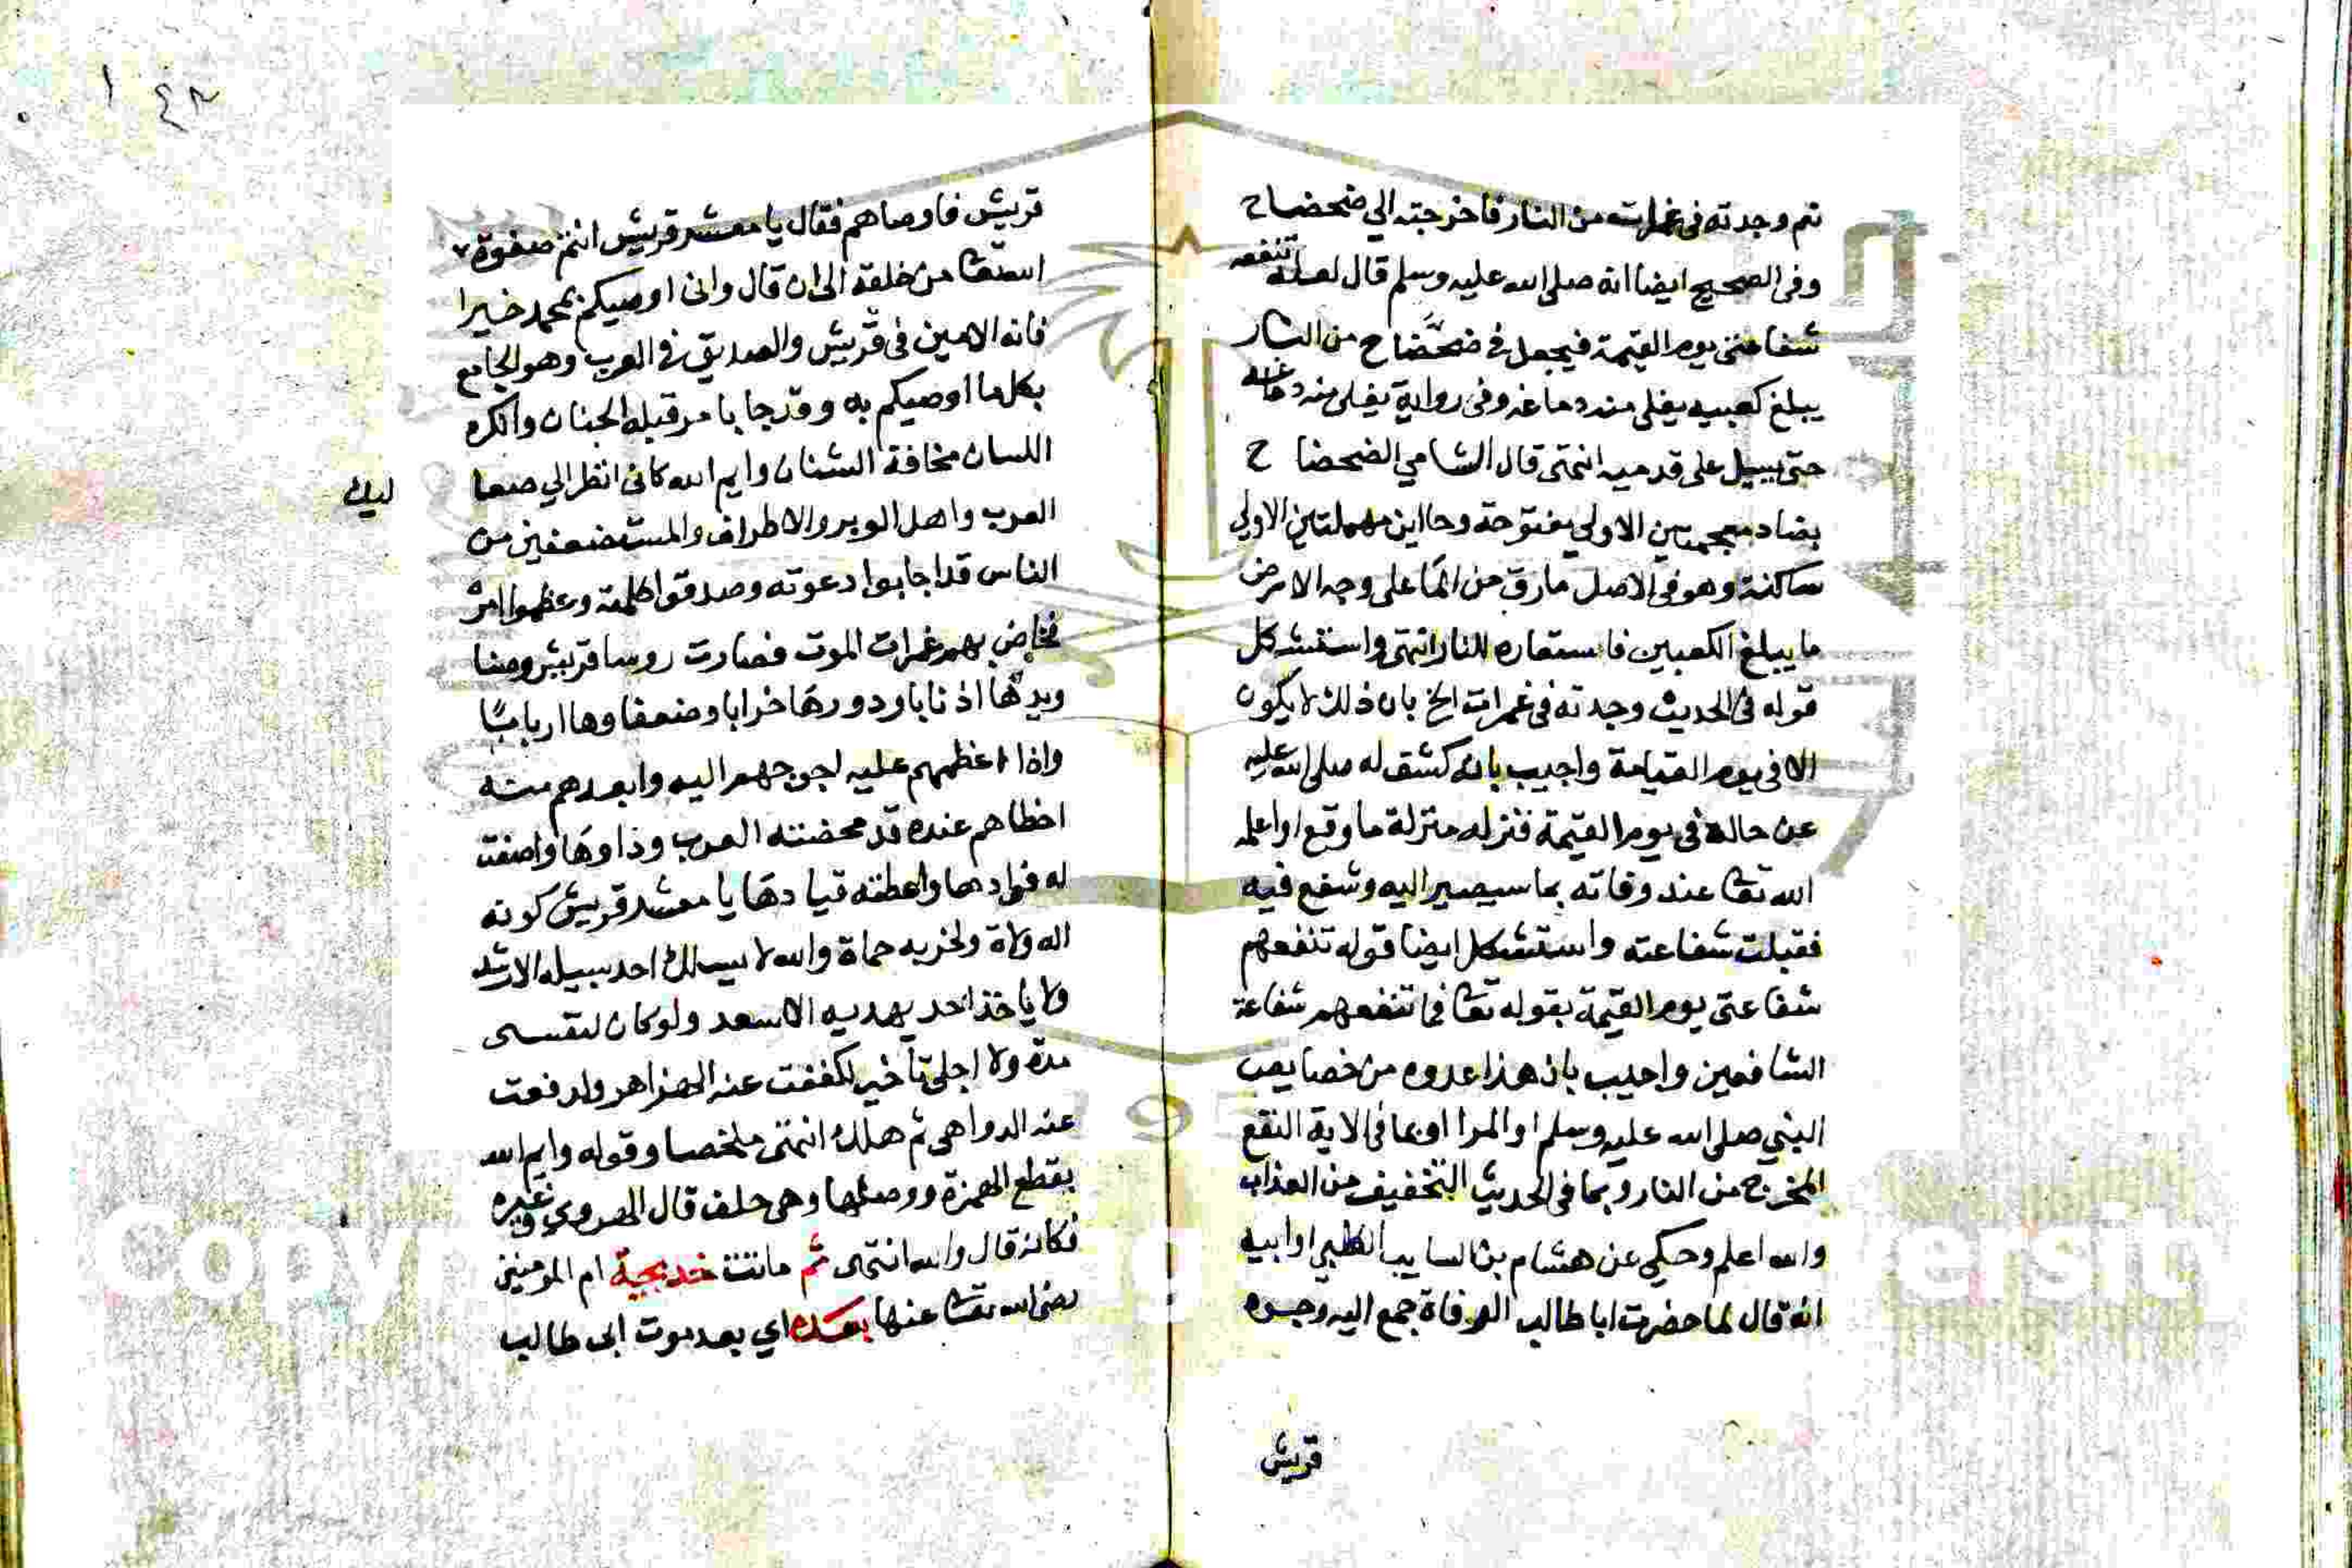 نعم وجدته فى غمرات من النار فاخرجته الي ضحضاح
وفى الصحيح ايضا انه صلى الله عليه وسلم قال لعله تنفعه
شفاعتى يوم القيمة فيجعل في ضحضاح من النار
يبلغ كعبيه يغلى منه دماغه وفى رواية يغلى منه دماغه
حتى يسيل على قدميه انتهى قال الشامي الضحضا ح
بضاد معجمتين الاولى مفتوحة وحااين مهملتين الاولي
ساكنة وهو فى الاصل مارق من الما على وجه الارض
ما يبلغ الكعبين فاستعاره للنار انتهى واستشكل
قوله فى الحديث وجدته فى غمرات الخ بان ذلك لا يكون
الا فى يوم القيامة واجيب بانه كشف له صلى الله عليه
عن حاله فى يوم القيمة فنزله منزلة ما وقع او اعلمه
الله تعا عند وفاته بما سيصير اليه وشفع فيه
فقبلت شفاعته واستشكل ايضا قوله تنفعهم
شفاعتى يوم القيمة بقوله تعا فما تنفعهم شفاعة
الشافعين واجيب بان هذا عدوه من خصايص
النبي صلى الله عليه وسلم او المراد بما فى الاية النفع
المخرج من النار وبما فى الحديث التخفيف من العذاب
والله اعلم وحكي عن هشام بن السايب الكلبي او ابيه
انه قال لما حضرت ابا طالب الوفاة جمع اليه وجوه
قريش
قريش فاوصاهم فقال يا معشر قريش انتم صفوة
الله تعا من خلقه الى ان قال وانى اوصيكم بمحمد خيرا
فانه الامين فى قريش والصديق في العرب وهو الجامع
بكل ما اوصيكم به وقد جا بامر قبله الجنان وانكره
اللسان مخافة الشنان وايم الله كانى انظر الي صعا
ليك
العرب واهل الوبر والاطراف والمستضعفين من
الناس قد اجابوا دعوته وصدقوا كلمته وعظموا امره
فخاض بهم غمرات الموت فصارت روسا قريش وصنا
ديدها اذنابا ودورها خرابا وضعفاوها اربابا
واذا اعظمهم عليه احوجهم اليه وابعدهم منه
احظاهم عنده قد محضته العرب ودادها واصفت
له فوادها واعطته قيادها يا معشر قريش كونه
اله ولاة ولحزبه حماة والله لا يسلك احد سبيله الا رشد
ولا ياخذ احد بهديه الا سعد ولو كان لنفسى
مدة ولا اجلى تأخير لكففت عنه الهزاهر ولدفعت
عنه الدواهى ثم هلك انتهى ملخصا وقوله وايم الله
بقطع الهمزة ووصلها وهى حلف قال الهروي وغيره
فكانه قال والله انتهى ثم ماتت خديجة ام المومنين
رضى الله تعا عنها بعده اي بعد موت ابى طالب